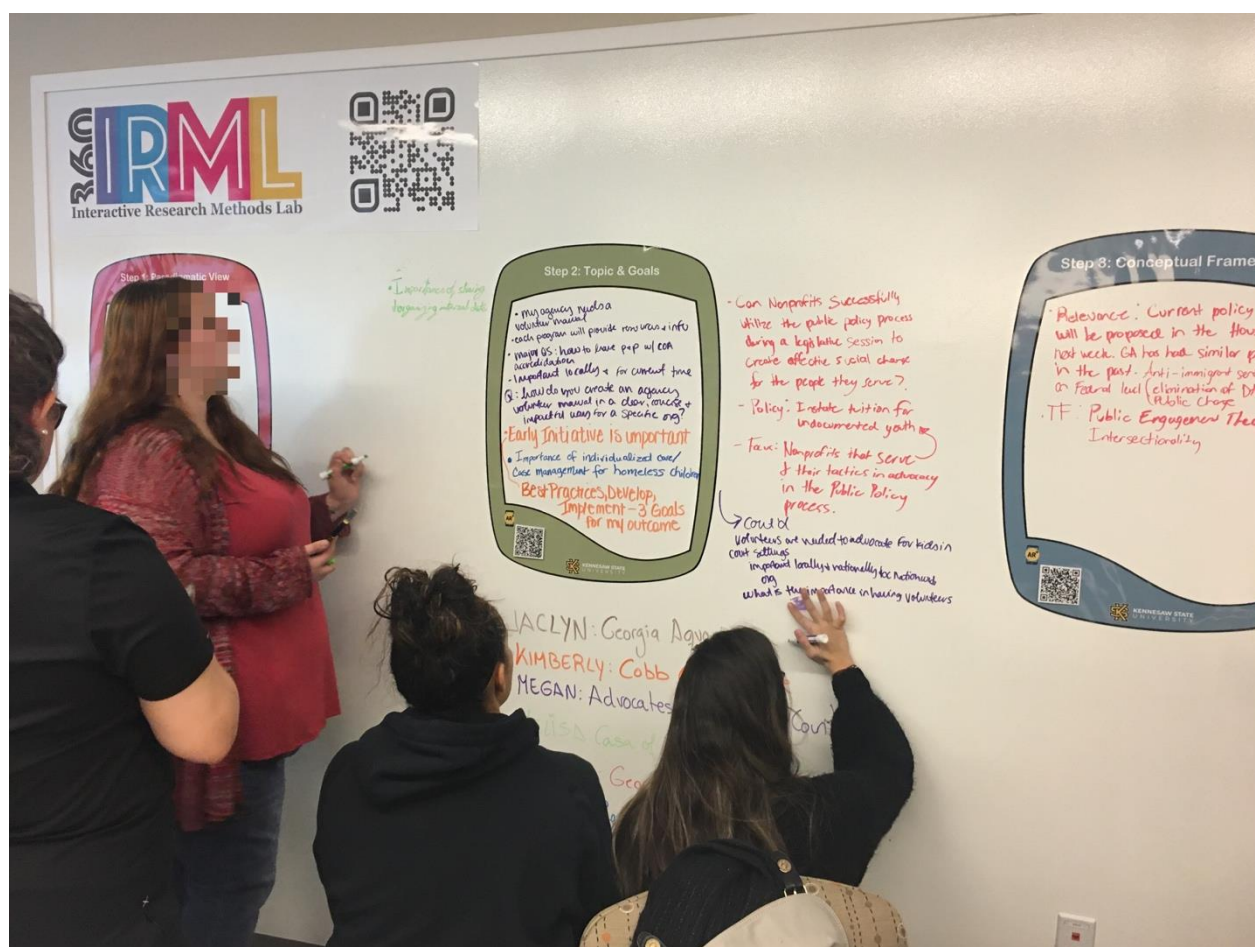 360 IRML
Interactive Research Methods Lab
Step 1: Paradigmatic View
• Importance of
Step 2: Topic & Goals
• my agency needs a
volunteer manual
• each program will provide resources & info
• major QS: how to have p&p w/ COA
accreditation
- Important locally & for current time
Q: how do you create an agency
volunteer manual in a clear, concise &
impactful way for a specific org?
• Early Initiative is important
• Importance of individualized care/
case management for homeless children
Best Practices, Develop,
Implement - 3 Goals
for my outcome
AR
KENNESAW STATE
UNIVERSITY
- Can Nonprofits Successfully
utilize the public policy process
during a legislative session to
create effective social change
for the people they serve?
- Policy: Instate tuition for
undocumented youth
- Focus: Nonprofits that serve
& their tactics in advocacy
in the Public Policy
process.
→ Could
volunteers are needed to advocate for kids in
court settings
important locally & nationally
org
what is the importance in having volunteers
Step 3: Conceptual Frame
Relevance: Current policy
will be proposed in the Hou
next week. GA has had similar p
in the past. Anti-immigrant sen
on Federal level (elimination of D
Public Charge
TF: Public Engagement Theo
Intersectionality
AR
KENNESAW STATE
UNIVERSITY
JACLYN: Georgia
KIMBERLY: Cobb
MEGAN: Advocates Court
Casa
Geo